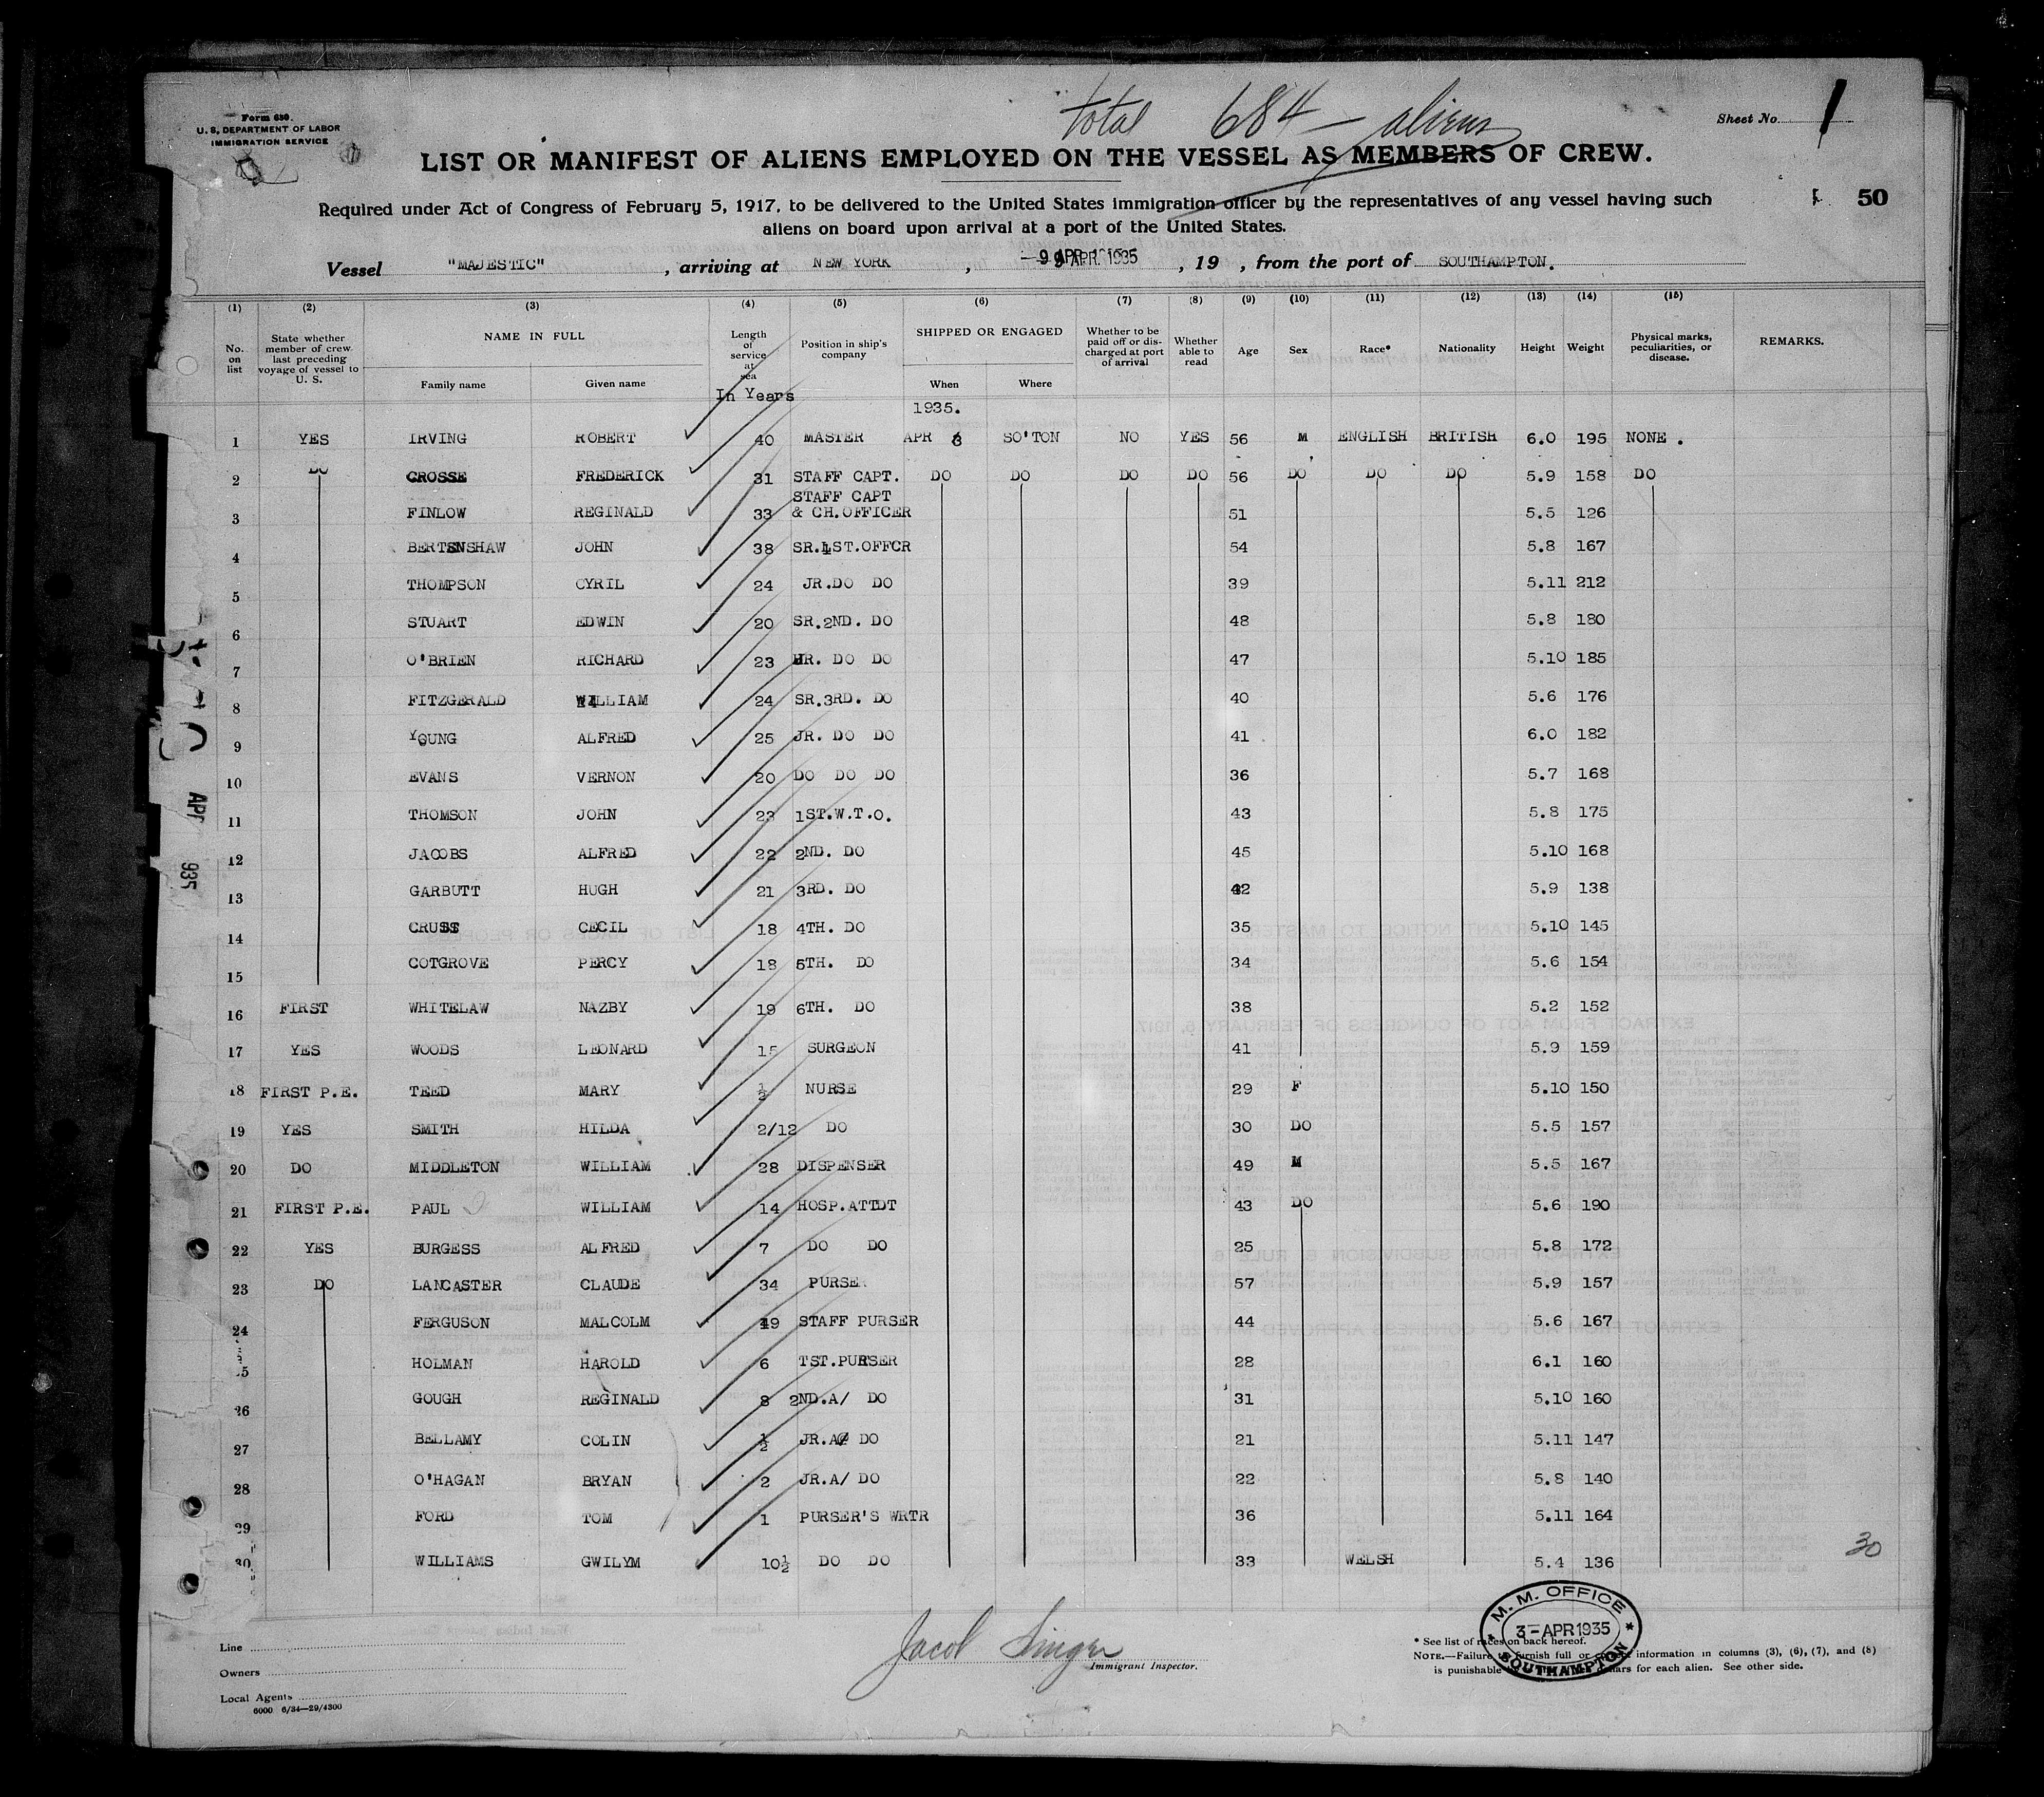 total 684 - aliens
Form 630.
U. S. DEPARTMENT OF LABOR
IMMIGRATION SERVICE
Sheet No. 1
LIST OR MANIFEST OF ALIENS EMPLOYED ON THE VESSEL AS MEMBERS OF CREW.
Required under Act of Congress of February 5, 1917, to be delivered to the United States immigration officer by the representatives of any vessel having such
aliens on board upon arrival at a port of the United States.
50
Vessel "MAJESTIC", arriving at NEW YORK, 9 APR 1935, 19 , from the port of SOUTHAMPTON.
(1) (2) (3) (4) (5) (6) (7) (8) (9) (10) (11) (12) (13) (14) (15)
No. on list
State whether member of crew last preceding voyage of vessel to U. S.
NAME IN FULL
Family name Given name
Length of service at sea
In Years
Position in ship's company
SHIPPED OR ENGAGED
When Where
Whether to be paid off or discharged at port of arrival
Whether able to read
Age Sex Race* Nationality Height Weight
Physical marks, peculiarities, or disease.
REMARKS.
1935.
1 YES IRVING ROBERT 40 MASTER APR 3 SO'TON NO YES 56 M ENGLISH BRITISH 6.0 195 NONE .
2 DO CROSSE FREDERICK 31 STAFF CAPT. DO DO DO DO 56 DO DO DO 5.9 158 DO
3 FINLOW REGINALD 33 STAFF CAPT & CH.OFFICER 51 5.5 126
4 BERTENSHAW JOHN 38 SR.1ST.OFFCR 54 5.8 167
5 THOMPSON CYRIL 24 JR.DO DO 39 5.11 212
6 STUART EDWIN 20 SR.2ND. DO 48 5.8 180
7 O'BRIEN RICHARD 23 JR. DO DO 47 5.10 185
8 FITZGERALD WILLIAM 24 SR.3RD. DO 40 5.6 176
9 YOUNG ALFRED 25 JR. DO DO 41 6.0 182
10 EVANS VERNON 20 DO DO DO 36 5.7 168
11 THOMSON JOHN 23 1ST.W.T.O. 43 5.8 175
12 JACOBS ALFRED 22 2ND. DO 45 5.10 168
13 GARBUTT HUGH 21 3RD. DO 42 5.9 138
14 CRUST CECIL 18 4TH. DO 35 5.10 145
15 COTGROVE PERCY 18 5TH. DO 34 5.6 154
16 FIRST WHITELAW NAZBY 19 6TH. DO 38 5.2 152
17 YES WOODS LEONARD 15 SURGEON 41 5.9 159
18 FIRST P.E. TEED MARY ½ NURSE 29 F 5.10 150
19 YES SMITH HILDA 2/12 DO 30 DO 5.5 157
20 DO MIDDLETON WILLIAM 28 DISPENSER 49 M 5.5 167
21 FIRST P.E. PAUL WILLIAM 14 HOSP.ATTDT 43 DO 5.6 190
22 YES BURGESS ALFRED 7 DO DO 25 5.8 172
23 DO LANCASTER CLAUDE 34 PURSE 57 5.9 157
24 FERGUSON MALCOLM 19 STAFF PURSER 44 5.6 167
25 HOLMAN HAROLD 6 TST.PURSER 28 6.1 160
26 GOUGH REGINALD 8 2ND.A/ DO 31 5.10 160
27 BELLAMY COLIN ½ JR.A/ DO 21 5.11 147
28 O'HAGAN BRYAN 2 JR.A/ DO 22 5.8 140
29 FORD TOM 1 PURSER'S WRTR 36 5.11 164
30 WILLIAMS GWILYM 10½ DO DO 33 WELSH 5.4 136
30
Line
Owners
Local Agents
6000 6/34—29/4300
Jacob Singer
Immigrant Inspector.
M. M. OFFICE
3-APR 1935
SOUTHAMPTON
* See list of races on back hereof.
NOTE.—Failure to furnish full or information in columns (3), (6), (7), and (8)
is punishable dollars for each alien. See other side.
APR 935